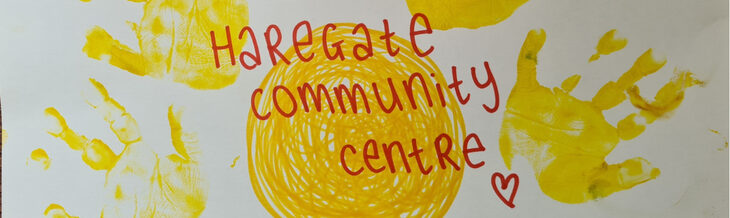 HaReGate
community
centRe